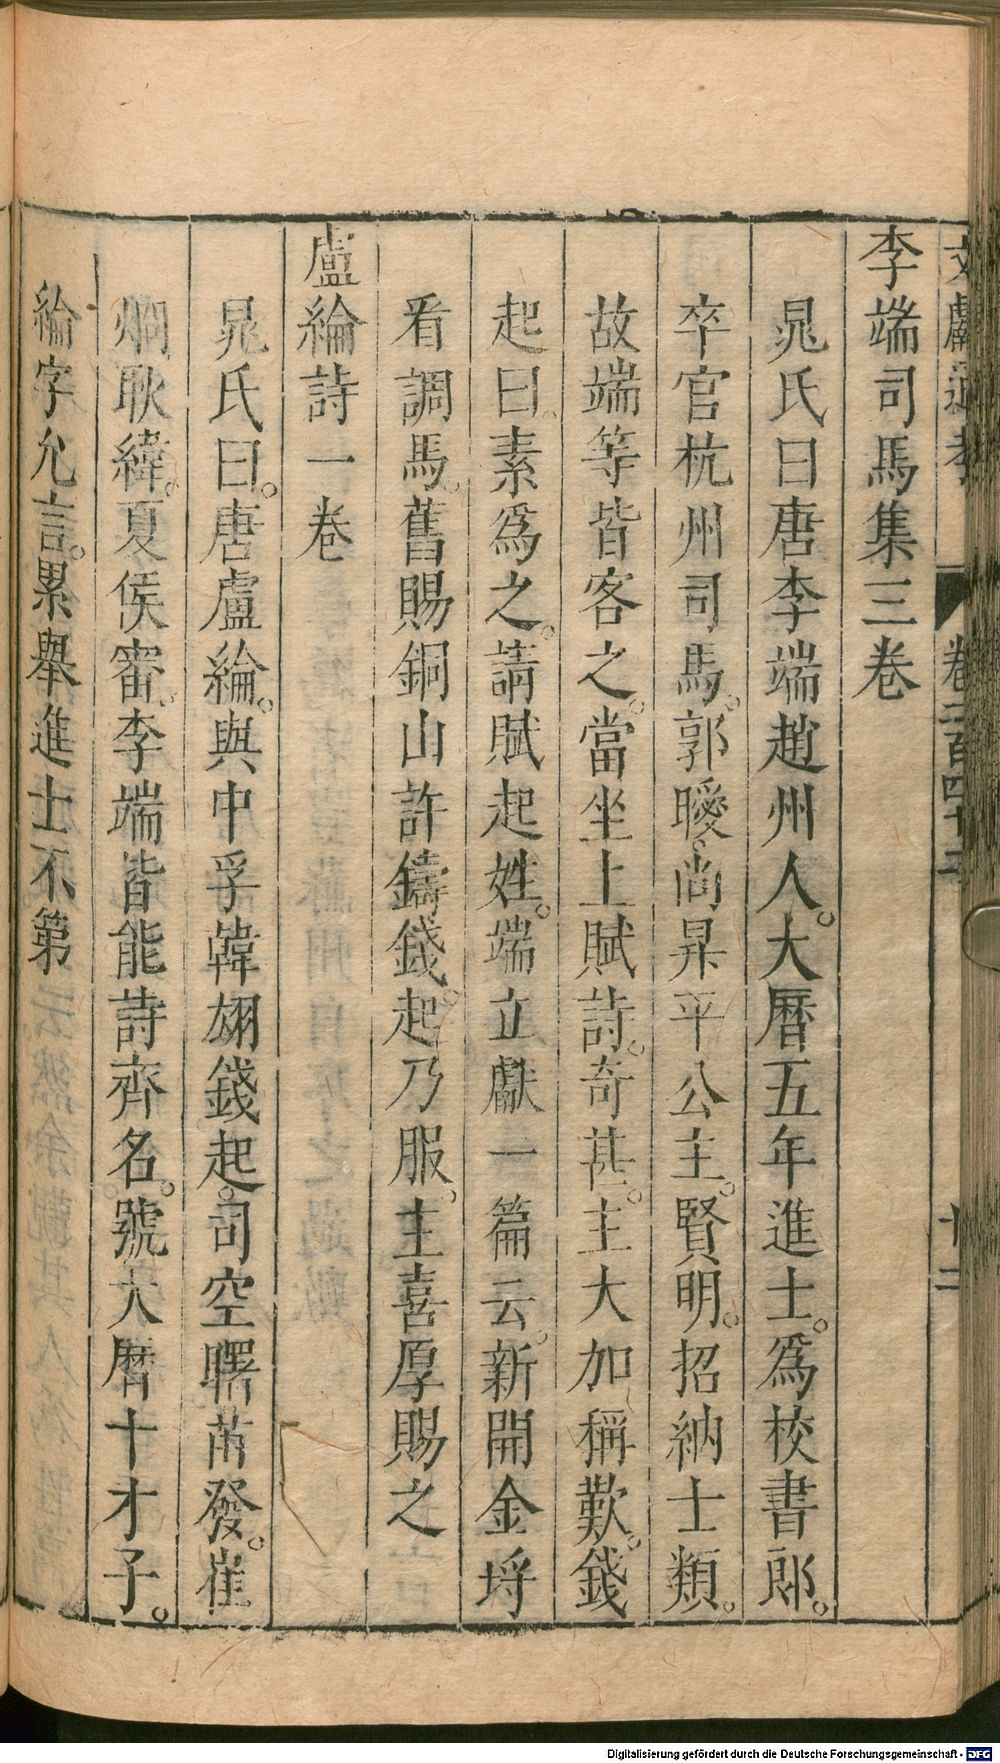 文獻通考 卷二百四十二 十二
李端司馬集三卷
晁氏曰唐李端趙州人。大曆五年進士。爲校書郎。
卒官杭州司馬。郭曖尚昇平公主。賢明。招納士類。
故端等皆客之。當坐上賦詩。奇甚。主大加稱歎。錢
起曰。素爲之。請賦起姓。端立獻一篇云。新開金埒
看調馬。舊賜銅山許鑄錢。起乃服。主喜厚賜之
盧綸詩一卷
晁氏曰。唐盧綸。與中孚韓翃錢起。司空曙苗發。崔
烱耿緯。夏侯審。李端皆能詩齊名。號大曆十才子。
綸字允言。累舉進士不第
Digitalisierung gefördert durch die Deutsche Forschungsgemeinschaft - DFG